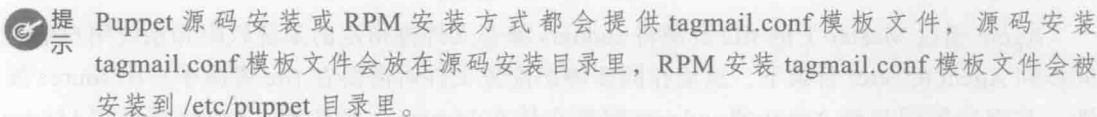 提示 Puppet 源码安装或 RPM 安装方式都会提供 tagmail.conf 模板文件，源码安装
tagmail.conf 模板文件会放在源码安装目录里，RPM 安装 tagmail.conf 模板文件会被
安装到 /etc/puppet 目录里。